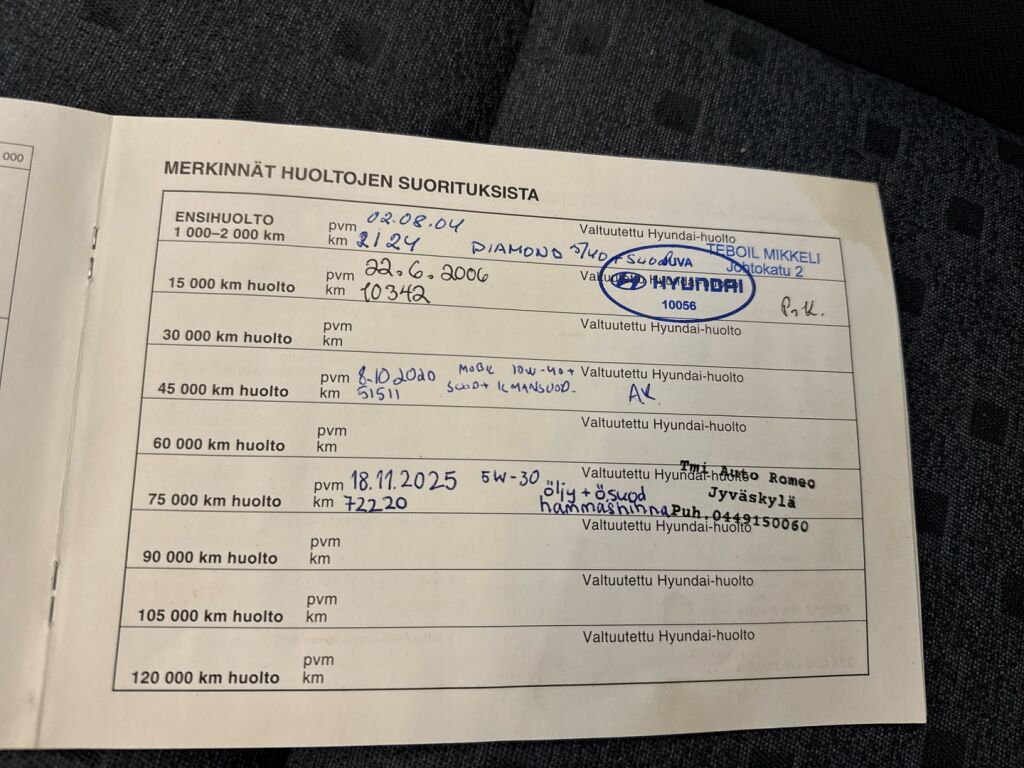 000
MERKINNÄT HUOLTOJEN SUORITUKSISTA
ENSIHUOLTO
1 000–2 000 km
pvm 02.08.04
km 2124
DIAMOND 5/40 + SUOD
Valtuutettu Hyundai-huolto
TEBOIL MIKKELI
Johtokatu 2
15 000 km huolto
pvm 22.6.2006
km 10342
HYUNDAI
10056
P.K.
30 000 km huolto
pvm
km
Valtuutettu Hyundai-huolto
45 000 km huolto
pvm 8.10.2020
km 51511
10W-40 +
SUOD + ILMANSUOD.
Valtuutettu Hyundai-huolto
AK.
60 000 km huolto
pvm
km
Valtuutettu Hyundai-huolto
75 000 km huolto
pvm 18.11.2025
km 72220
5W-30
öljy + ösuod
hammashihna
Valtuutettu Hyundai-huolto
Tmi Auto Romeo
Jyväskylä
Puh.0449150060
90 000 km huolto
pvm
km
Valtuutettu Hyundai-huolto
105 000 km huolto
pvm
km
Valtuutettu Hyundai-huolto
120 000 km huolto
pvm
km
Valtuutettu Hyundai-huolto